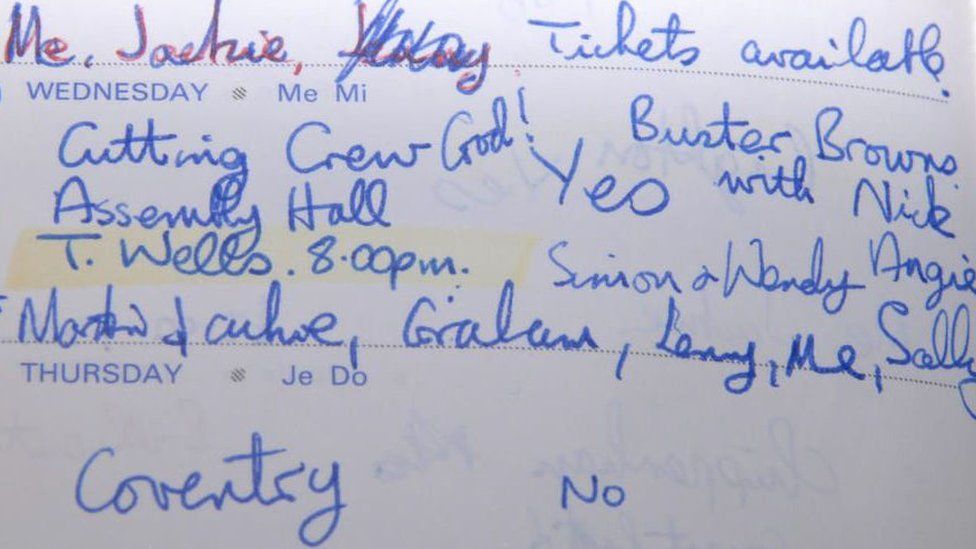 Me. Jackie, Tickets available.
WEDNESDAY Me Mi
Cutting Crew Good! Yes Buster Browns
Assembly Hall with Nick
T. Wells. 8.00pm. Simon & Wendy Angie
Graham, Lenny, Me, Sally
THURSDAY Je Do
Coventry No